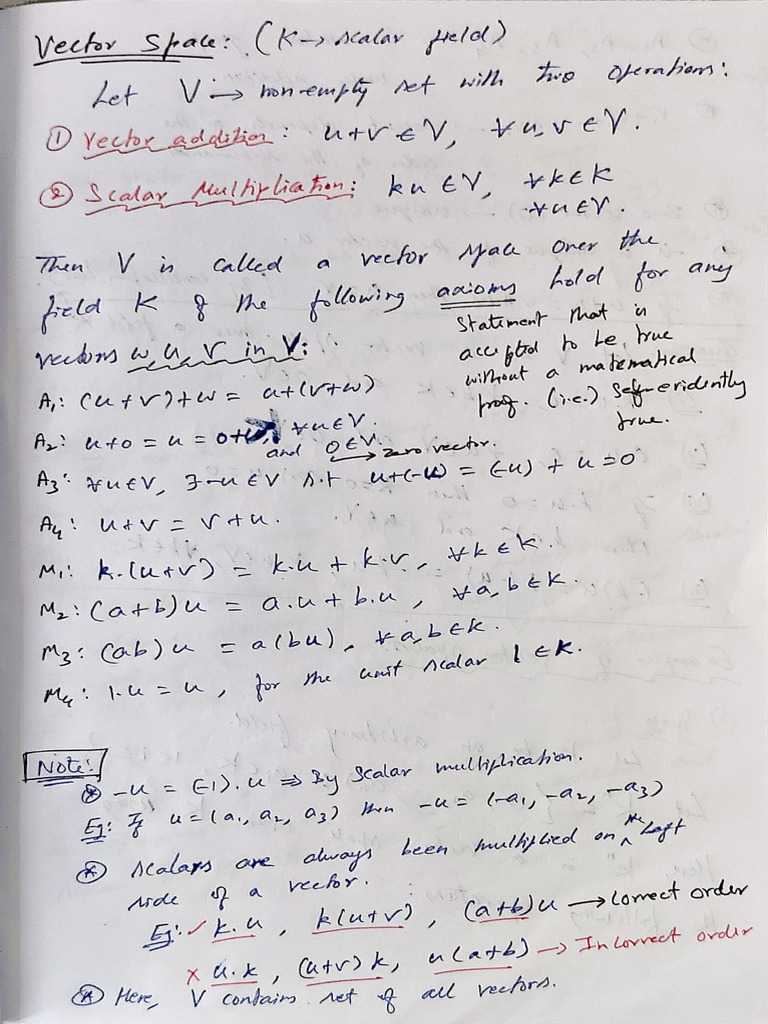 Vector Space: (K → scalar field)
Let V → non-empty set with two operations:
① Vector addition: u+v ∈ V, ∀ u, v ∈ V.
② Scalar Multiplication: ku ∈ V, ∀ k ∈ K
∀ u ∈ V.
Then V is called a vector space over the
field K if the following axioms hold for any
vectors w, u, v in V:
Statement that is
accepted to be true
without a matematical
proof. (i.e.) Self-evidently
true.
A₁: (u+v)+w = u+(v+w)
A₂: u+0 = u = 0+u, ∀ u ∈ V.
and 0 ∈ V → zero vector.
A₃: ∀ u ∈ V, ∃ -u ∈ V s.t u+(-u) = (-u) + u = 0
A₄: u+v = v+u.
M₁: k.(u+v) = k.u + k.v, ∀ k ∈ K.
M₂: (a+b)u = a.u + b.u, ∀ a, b ∈ K.
M₃: (ab)u = a(bu), ∀ a, b ∈ K.
M₄: 1.u = u, for the unit scalar 1 ∈ K.
Note:
⊛ -u = (-1).u ⇒ By scalar multiplication.
Eg: If u = (a₁, a₂, a₃) then -u = (-a₁, -a₂, -a₃)
⊛ Scalars are always been multiplied on the Left
side of a vector.
Eg: ✓ k.u, k(u+v), (a+b)u → Correct order
✗ u.k, (u+v)k, u(a+b) → Incorrect order
⊛ Here, V contains set of all vectors.